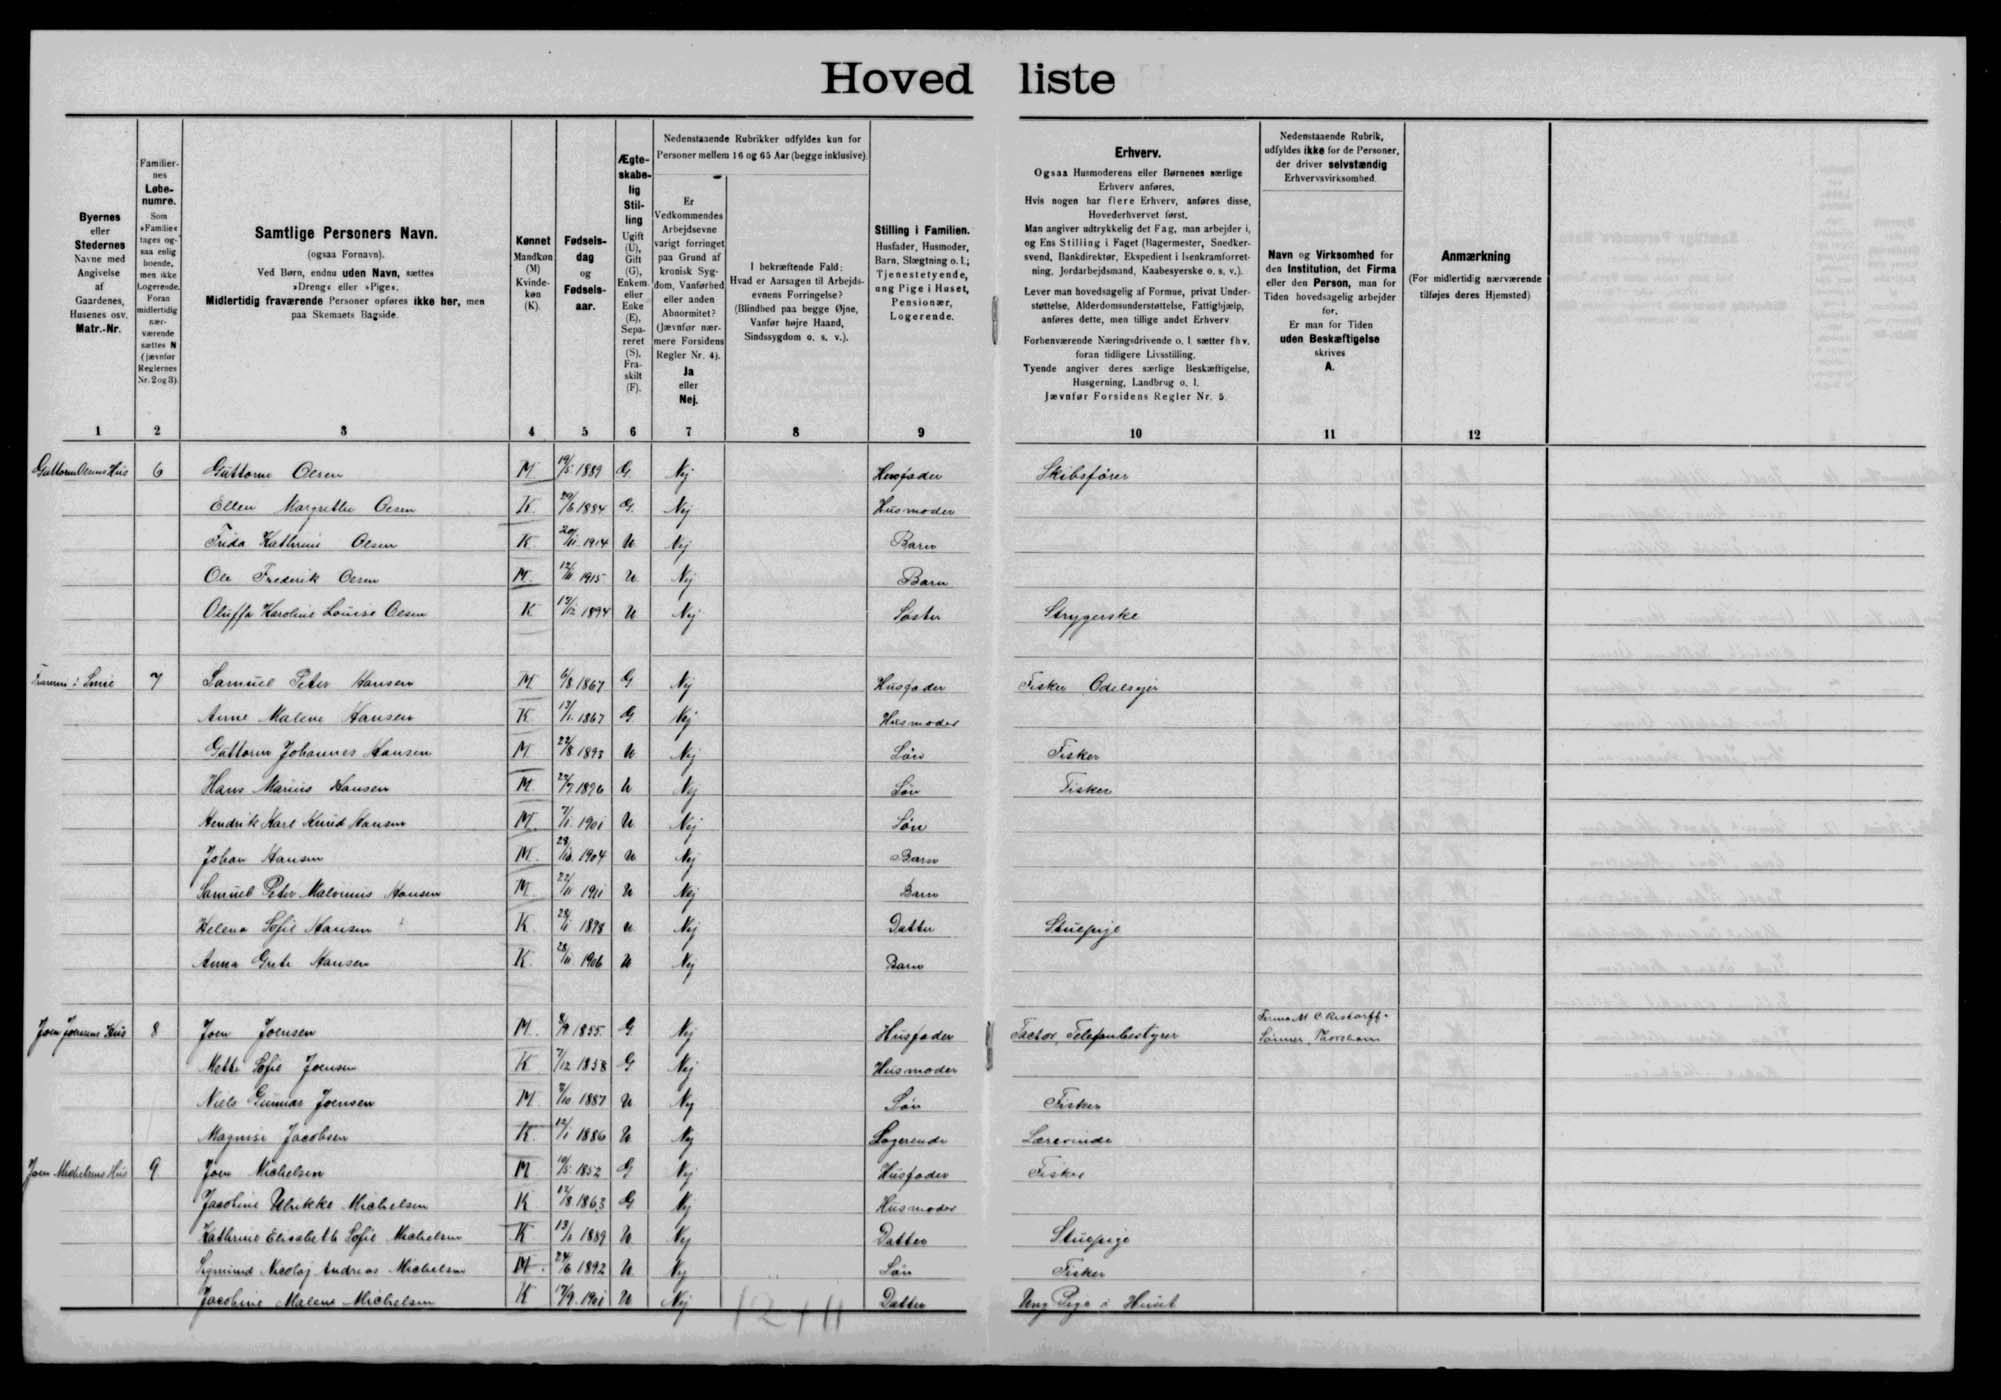 Hoved liste
Byernes
eller
Stedernes
Navne med
Angivelse
af
Gaardenes,
Husenes osv.
Matr.-Nr.
Familier-
nes
Løbe-
numre.
Som
»Familie«
tages og-
saa enlig
boende,
men ikke
Logerende.
Foran
midlertidig
nær-
værende
sættes N
(jævnfør
Reglernes
Nr. 2 og 3).
Samtlige Personers Navn.
(ogsaa Fornavn).
Ved Børn, endnu uden Navn, sættes
»Dreng« eller »Pige«.
Midlertidig fraværende Personer opføres ikke her, men
paa Skemaets Bagside.
Kønnet
Mandkøn
(M)
Kvinde-
køn
(K).
Fødsels-
dag
og
Fødsels-
aar.
Ægte-
skabe-
lig
Stil-
ling
Ugift
(U),
Gift
(G),
Enkem.
eller
Enke
(E),
Sepa-
reret
(S),
Fra-
skilt
(F).
Nedenstaaende Rubrikker udfyldes kun for
Personer mellem 16 og 65 Aar (begge inklusive).
Er
Vedkommendes
Arbejdsevne
varigt forringet
paa Grund af
kronisk Syg-
dom, Vanførhed
eller anden
Abnormitet?
(Jævnfør nær-
mere Forsidens
Regler Nr. 4).
Ja
eller
Nej.
I bekræftende Fald:
Hvad er Aarsagen til Arbejds-
evnens Forringelse?
(Blindhed paa begge Øjne,
Vanfør højre Haand,
Sindssygdom o. s. v.).
Stilling i Familien.
Husfader, Husmoder,
Barn, Slægtning o. l.;
Tjenestetyende,
ung Pige i Huset,
Pensionær,
Logerende.
Erhverv.
Ogsaa Husmoderens eller Børnenes særlige
Erhverv anføres.
Hvis nogen har flere Erhverv, anføres disse,
Hovederhvervet først.
Man angiver udtrykkelig det Fag, man arbejder i,
og Ens Stilling i Faget (Bagermester, Snedker-
svend, Bankdirektør, Ekspedient i Isenkramforret-
ning, Jordarbejdsmand, Kaabesyerske o. s. v.).
Lever man hovedsagelig af Formue, privat Under-
støttelse, Alderdomsunderstøttelse, Fattighjælp,
anføres dette, men tillige andet Erhverv
Forhenværende Næringsdrivende o. l. sætter fhv.
foran tidligere Livsstilling.
Tyende angiver deres særlige Beskæftigelse,
Husgerning, Landbrug o. l.
Jævnfør Forsidens Regler Nr. 5.
Nedenstaaende Rubrik,
udfyldes ikke for de Personer,
der driver selvstændig
Erhvervsvirksomhed.
Navn og Virksomhed for
den Institution, det Firma
eller den Person, man for
Tiden hovedsagelig arbejder
for.
Er man for Tiden
uden Beskæftigelse
skrives
A.
Anmærkning
(For midlertidig nærværende
tilføjes deres Hjemsted)
1 2 3 4 5 6 7 8 9 10 11 12
Guttorm Olsens Hus 6 Guttorm Olsen M 19/5 1889 G. Nej Husfader Skibsfører
Ellen Margrethe Olsen K. 29/6 1884 G. Nej Husmoder
Frida Kathrine Olsen K. 20/11 1914 U Nej Barn
Ole Frederik Olsen M. 12/11 1915 U Nej Barn
Oluffa Karoline Louise Olsen K 12/12 1894 U Nej Søster Strygerske
7 Samuel Peter Hansen M 6/8 1867 G Nej Husfader Fisker Odelsejer
Anne Malene Hansen K 13/1 1867 G Nej Husmoder
Guttorm Johannes Hansen M. 22/8 1893 U Nej Søn Fisker
Hans Marius Hansen M. 22/7 1896 U Nej Søn Fisker
Hendrik Karl Knud Hansen M 7/1 1901 U Nej Søn
Johan Hansen M. 1904 U Nej Barn
Samuel Peter Malvinus Hansen M. 22/11 1911 U Nej Barn
Helena Sofie Hansen K. 28/1 1898 U Nej Datter Stuepige
Anna Grete Hansen K. 28/11 1906 U Nej Barn
Joen Joensens Hus 8 Joen Joensen M. 8/9 1855 G Nej Husfader Factor, Telefonbestyrer Firma M. C. Restorff
Sønner, Thorshavn
Mette Sofie Joensen K. 7/12 1858 G Nej Husmoder
Niels Gunnar Joensen M. 1887 U Nej Søn Fisker
Magnise Jacobsen K. 12/1 1886 U. Nej Logerende Lærerinde
Joen Michelsens Hus 9. Joen Michelsen M 19/5 1852 G Nej Husfader Fisker
Jacobine Ulrikke Michelsen K 12/8 1863 G Nej Husmoder
Kathrine Elisabeth Sofie Michelsen K. 13/1 1889 U. Nej Datter Stuepige
Sigmund Nicolaj Andreas Michelsen M. 24/6 1892 U. Nej Søn Fisker
Jacobine Malene Michelsen K 17/9 1901 U Nej Datter Ung Pige i Huset
12+11